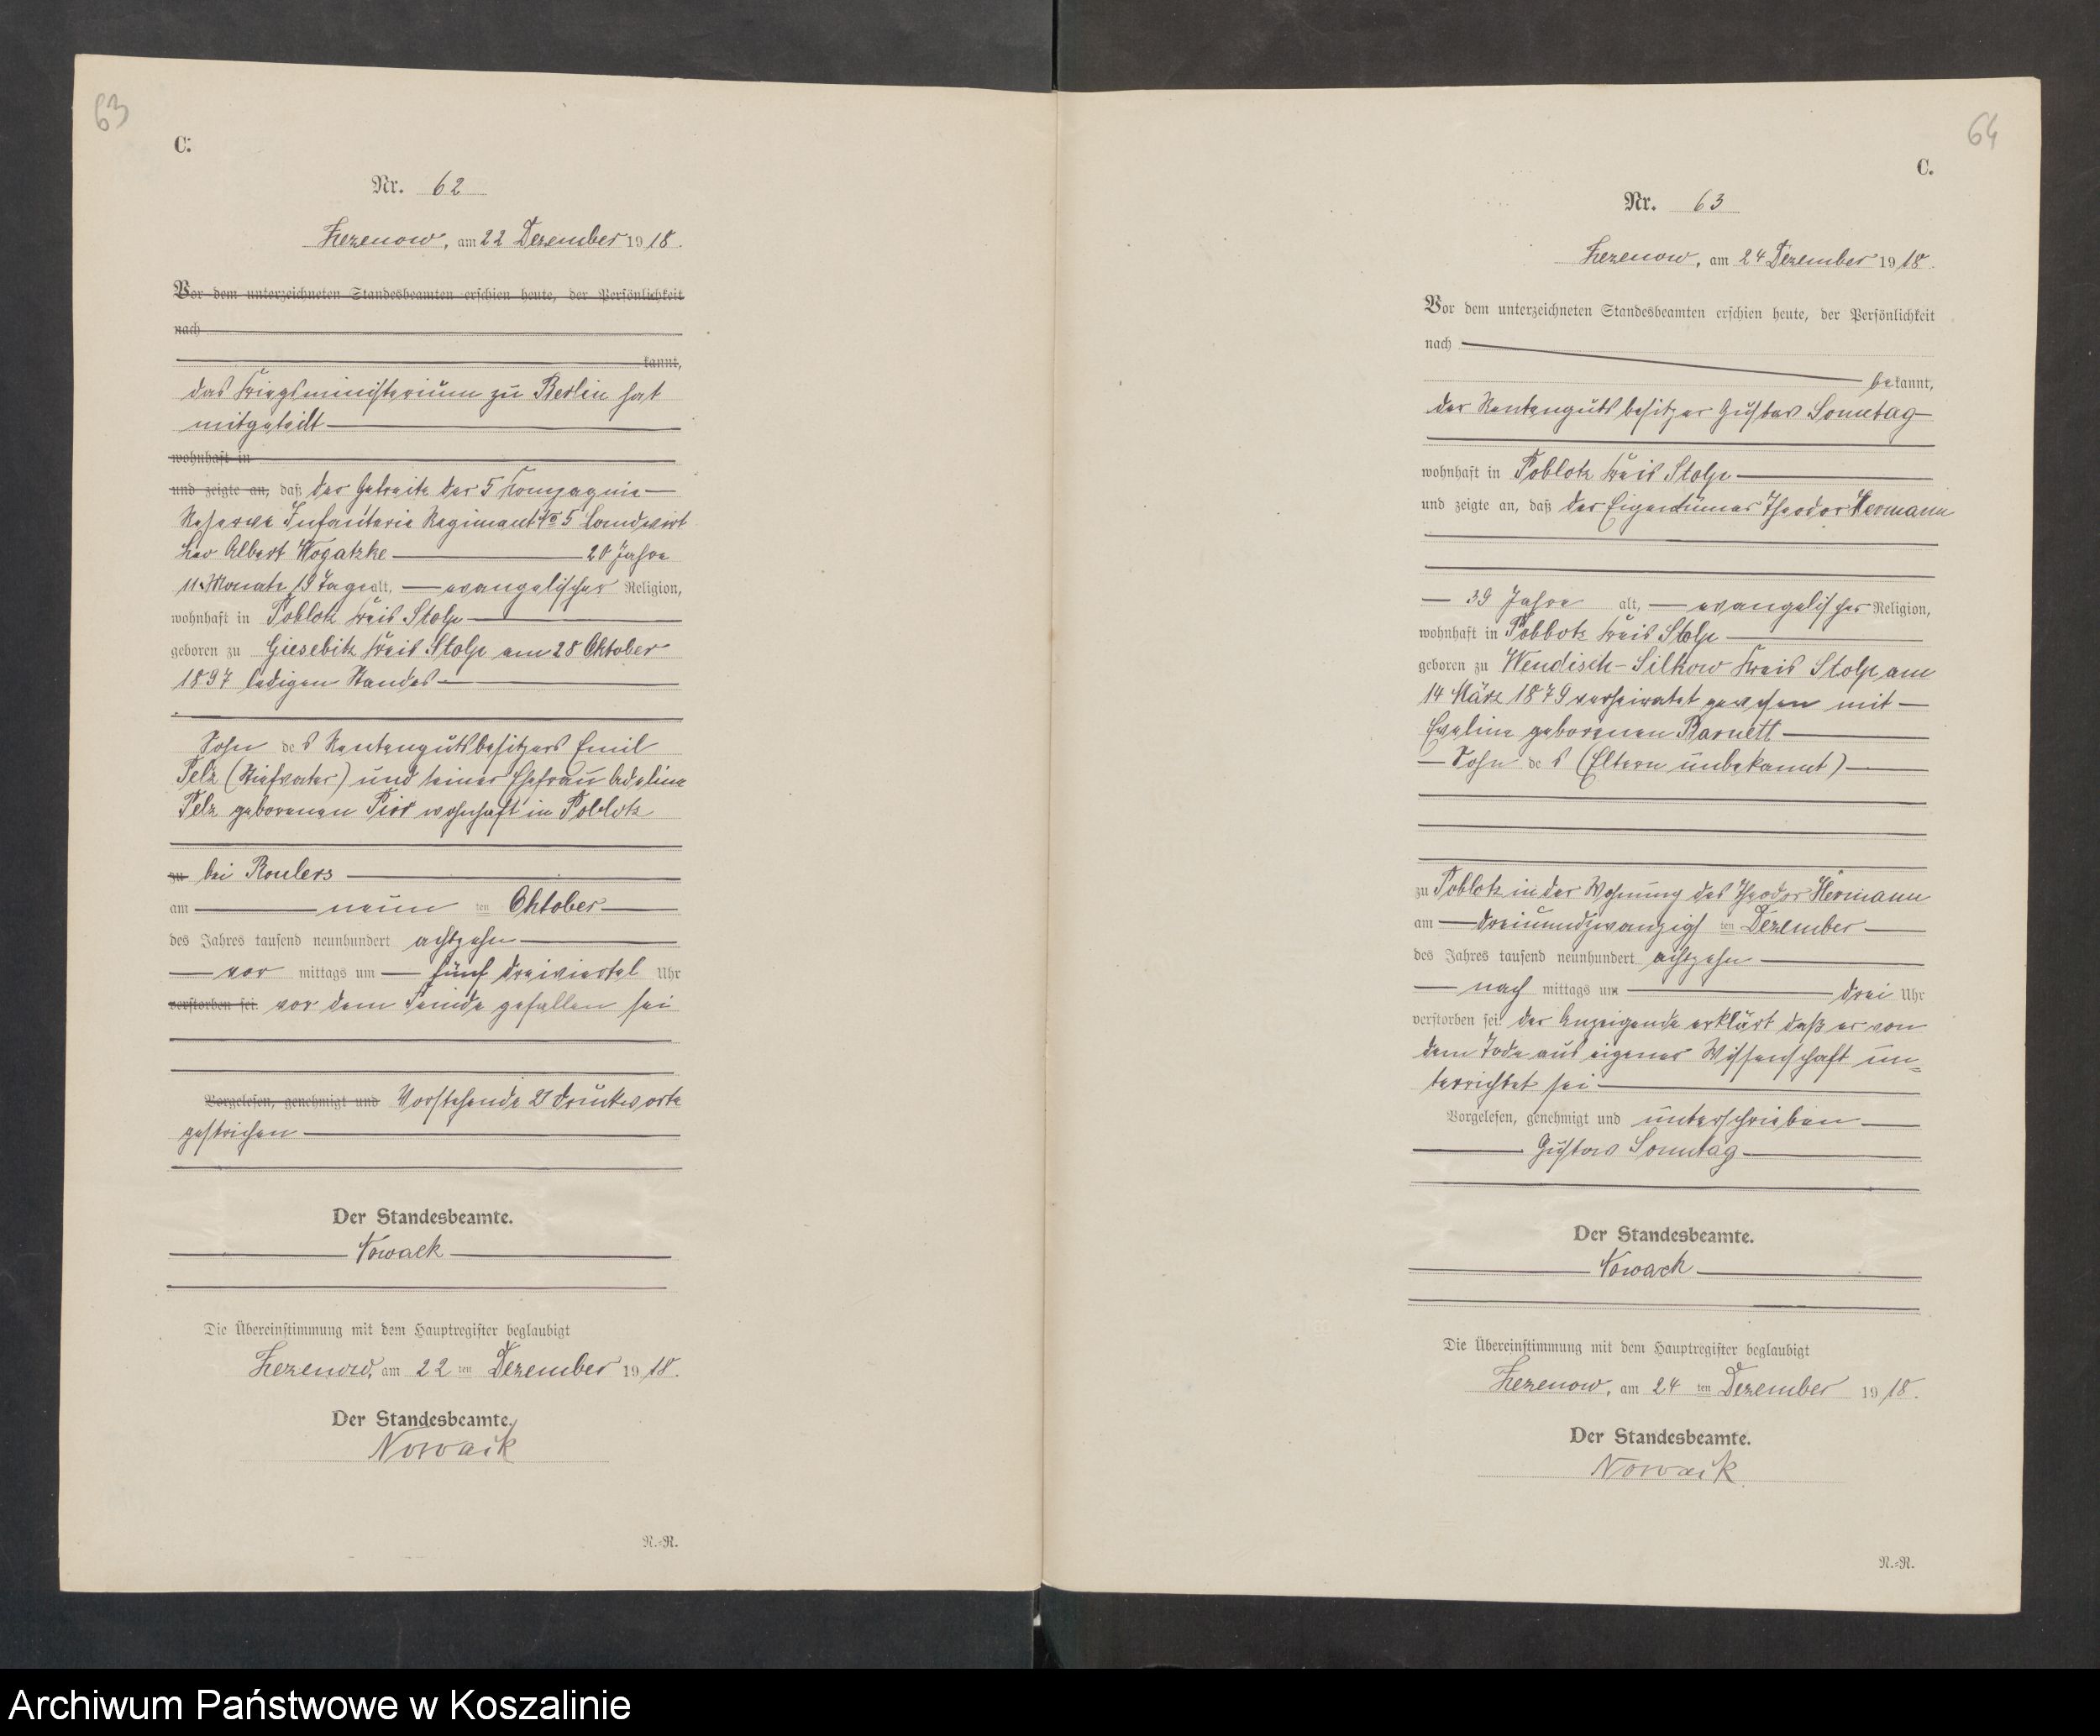 63
C.
Nr. 62
Zezenow, am 22 Dezember 1918.
Vor dem unterzeichneten Standesbeamten erschien heute, der Persönlichkeit
nach
kannt,
das Kriegsministerium zu Berlin hat
mitgeteilt
wohnhaft in
und zeigte an, daß der Gefreite der 5 Kompagnie
Reserve Infanterie Regiment No 5 Landwirt
Albert Wogatzke 20 Jahre
11 Monate 19 Tage alt, evangelischer Religion,
wohnhaft in Poblotz Kreis Stolp
geboren zu Giesebitz Kreis Stolp am 28 Oktober
1897 ledigen Standes
Sohn des Rentengutsbesitzers Emil
Pelz (Stiefvater) und seiner Ehefrau Adeline
Pelz geborenen wohnhaft in Poblotz
zu bei Roulers
am neun ten Oktober
des Jahres tausend neunhundert achtzehn
vor mittags um fünf dreiviertel Uhr
verstorben sei. vor dem Feinde gefallen sei
Vorgelesen, genehmigt und Vorstehende 21 Druckworte
gestrichen
Der Standesbeamte.
Nowack
Die Übereinstimmung mit dem Hauptregister beglaubigt
Zezenow, am 22 ten Dezember 1918.
Der Standesbeamte.
Nowack
N.=R.
64
C.
Nr. 63
Zezenow, am 24 Dezember 1918.
Vor dem unterzeichneten Standesbeamten erschien heute, der Persönlichkeit
nach
bekannt,
der Rentengutsbesitzer Gustav Sonntag
wohnhaft in Poblotz Kreis Stolp
und zeigte an, daß der Eigentümer Theodor Hermann
39 Jahre alt, evangelischer Religion,
wohnhaft in Poblotz Kreis Stolp
geboren zu Wendisch-Silkow Kreis Stolp am
14 März 1879 verheiratet gewesen mit
Eveline geborenen Barnett
Sohn des (Eltern unbekannt)
zu Poblotz in der Wohnung des Theodor Hermann
am dreiundzwanzigsten Dezember
des Jahres tausend neunhundert achtzehn
nach mittags um drei Uhr
verstorben sei. der Anzeigende erklärt daß er von
dem Tode aus eigener Wissenschaft un=
terrichtet sei
Vorgelesen, genehmigt und unterschrieben
Gustav Sonntag
Der Standesbeamte.
Nowack
Die Übereinstimmung mit dem Hauptregister beglaubigt
Zezenow, am 24 ten Dezember 1918.
Der Standesbeamte.
Nowack
N.=R.
Archiwum Państwowe w Koszalinie